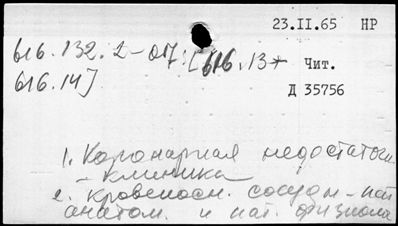 23.II.65 НР
616.132.2-017:[616.13+ Чит.
616.14]
Д 35756
1. Коронарная недостаточн.
- клиника
2. кровеносн. сосуды - пат.
анатом. и пат. физиол.